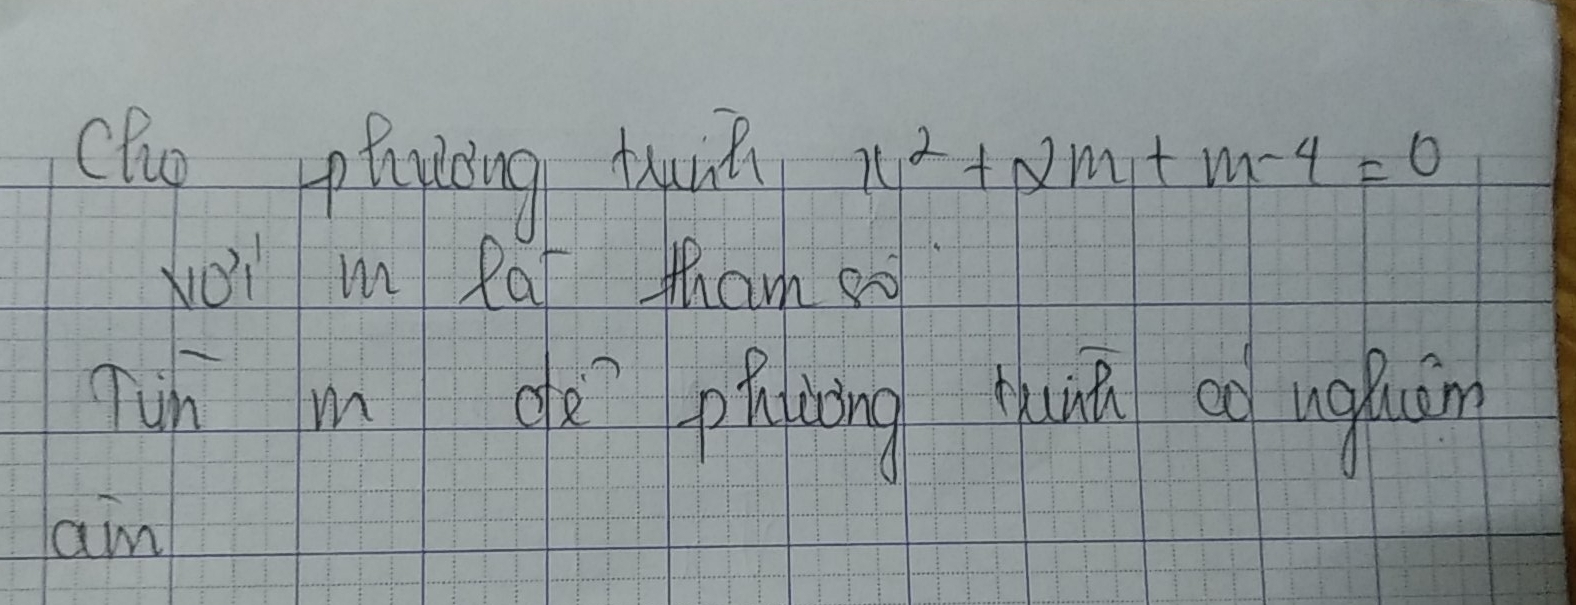 Cho phương trình x² + 2m + m - 4 = 0
với m là tham số
Tìm m để phương trình có nghiệm
âm